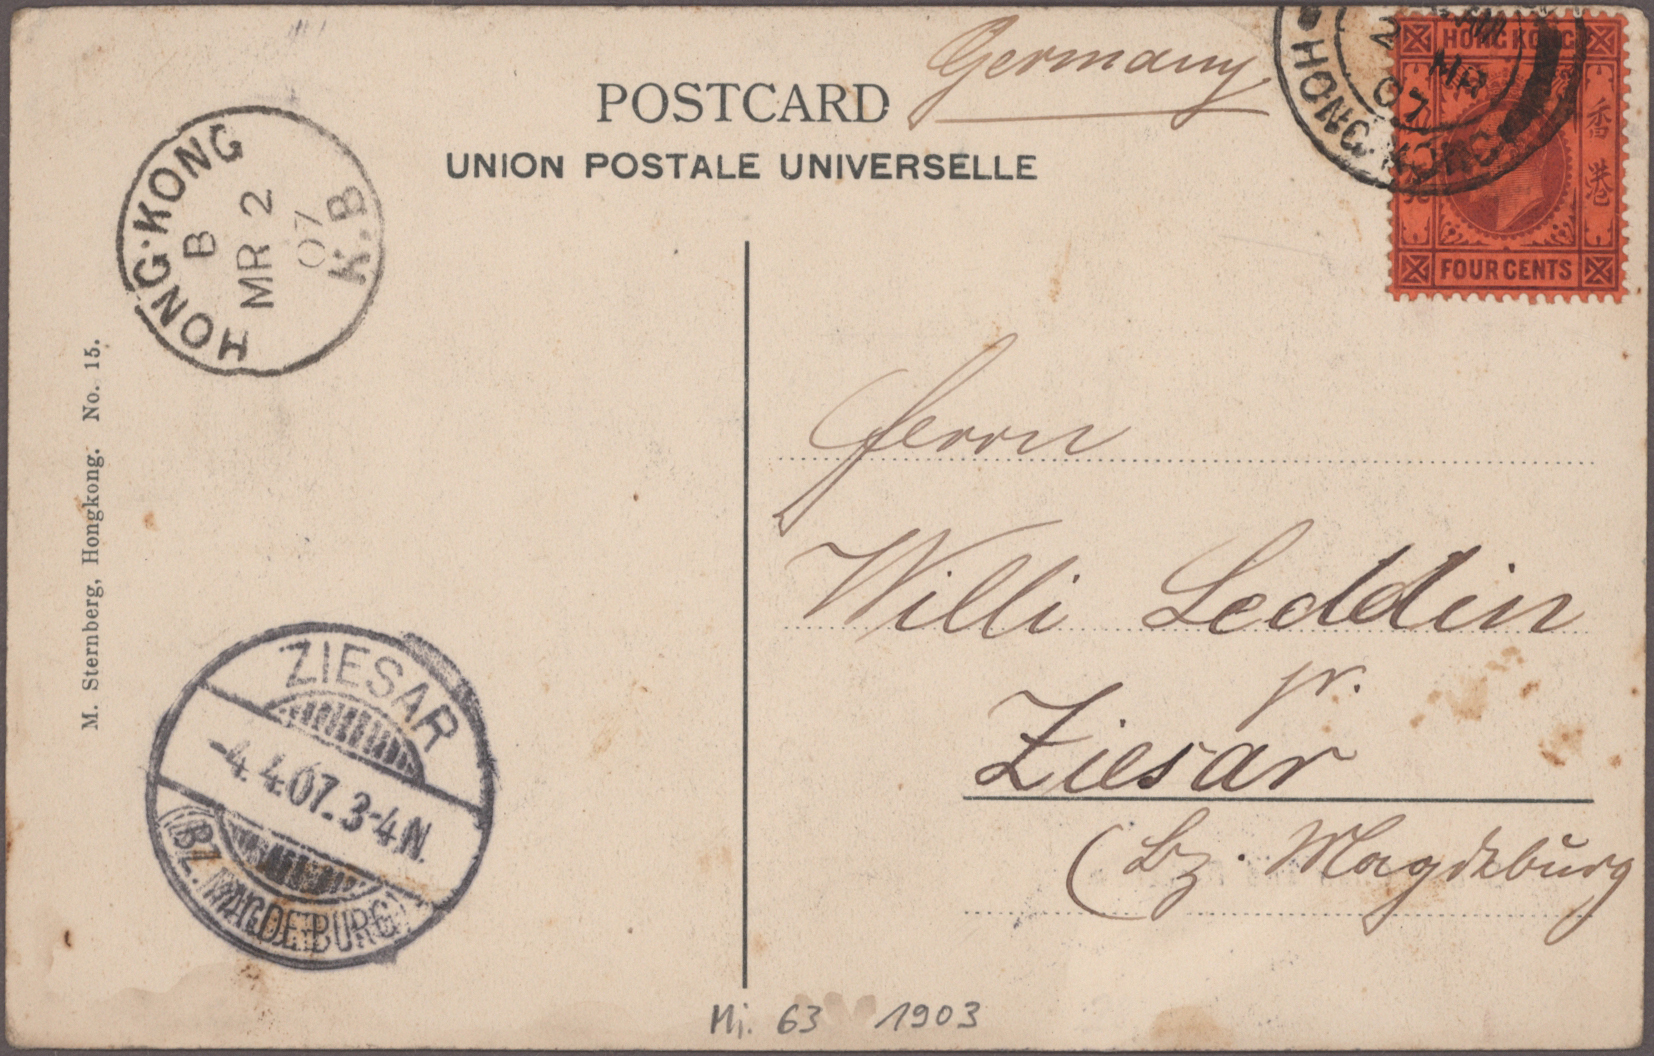 Germany
POSTCARD
UNION POSTALE UNIVERSELLE
HONG·KONG
B
MR 2
07
K.B
HONG KONG
2 MR
07
HONG KONG
香港
FOUR CENTS
M. Sternberg, Hongkong. No. 15.
Herrn
Willi Leddin
jr.
Ziesar
(Bz. Magdeburg
ZIESAR
-4.4.07. 3-4 N.
(BZ. MAGDEBURG)
Mi. 63 1903